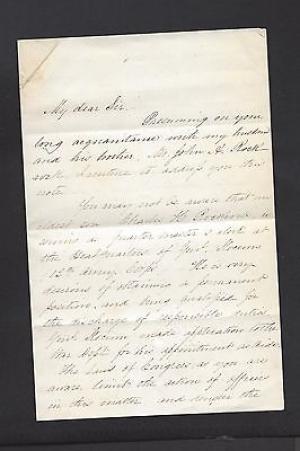 My dear Sir.
Presuming on your
long acquaintance with my husband
and his brother, Mr. John A. Rock-
well I venture to address you this
note
You may not be aware that my
son Charles H. is
serving as quarter master's clerk at
the Head Quarters of Genl. Slocum
12th Army Corps. He is very
desirous of obtaining a permanent
position, and being qualified for
the discharge of responsible duties
Genl. Slocum made application to the
War Dept. for his appointment as Aide
The Laws of Congress as you are
aware, limit the action of officers
in this matter and render the